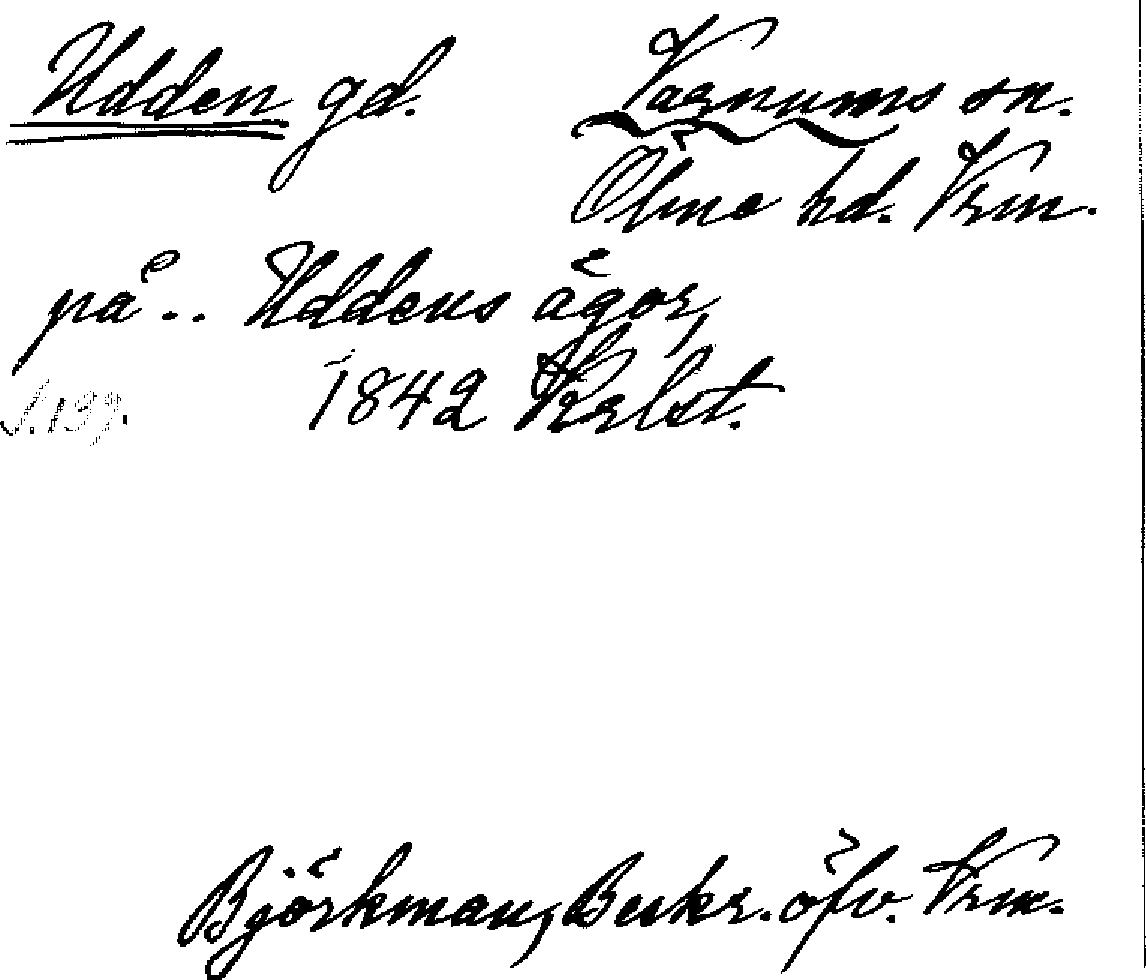 Udden gd. Varnums sn.
Ölme hd. Vrm.
på .. Uddens ägor,
S. 199. 1842 Krlst.
Björkman, Beskr. öfv. Vrm.